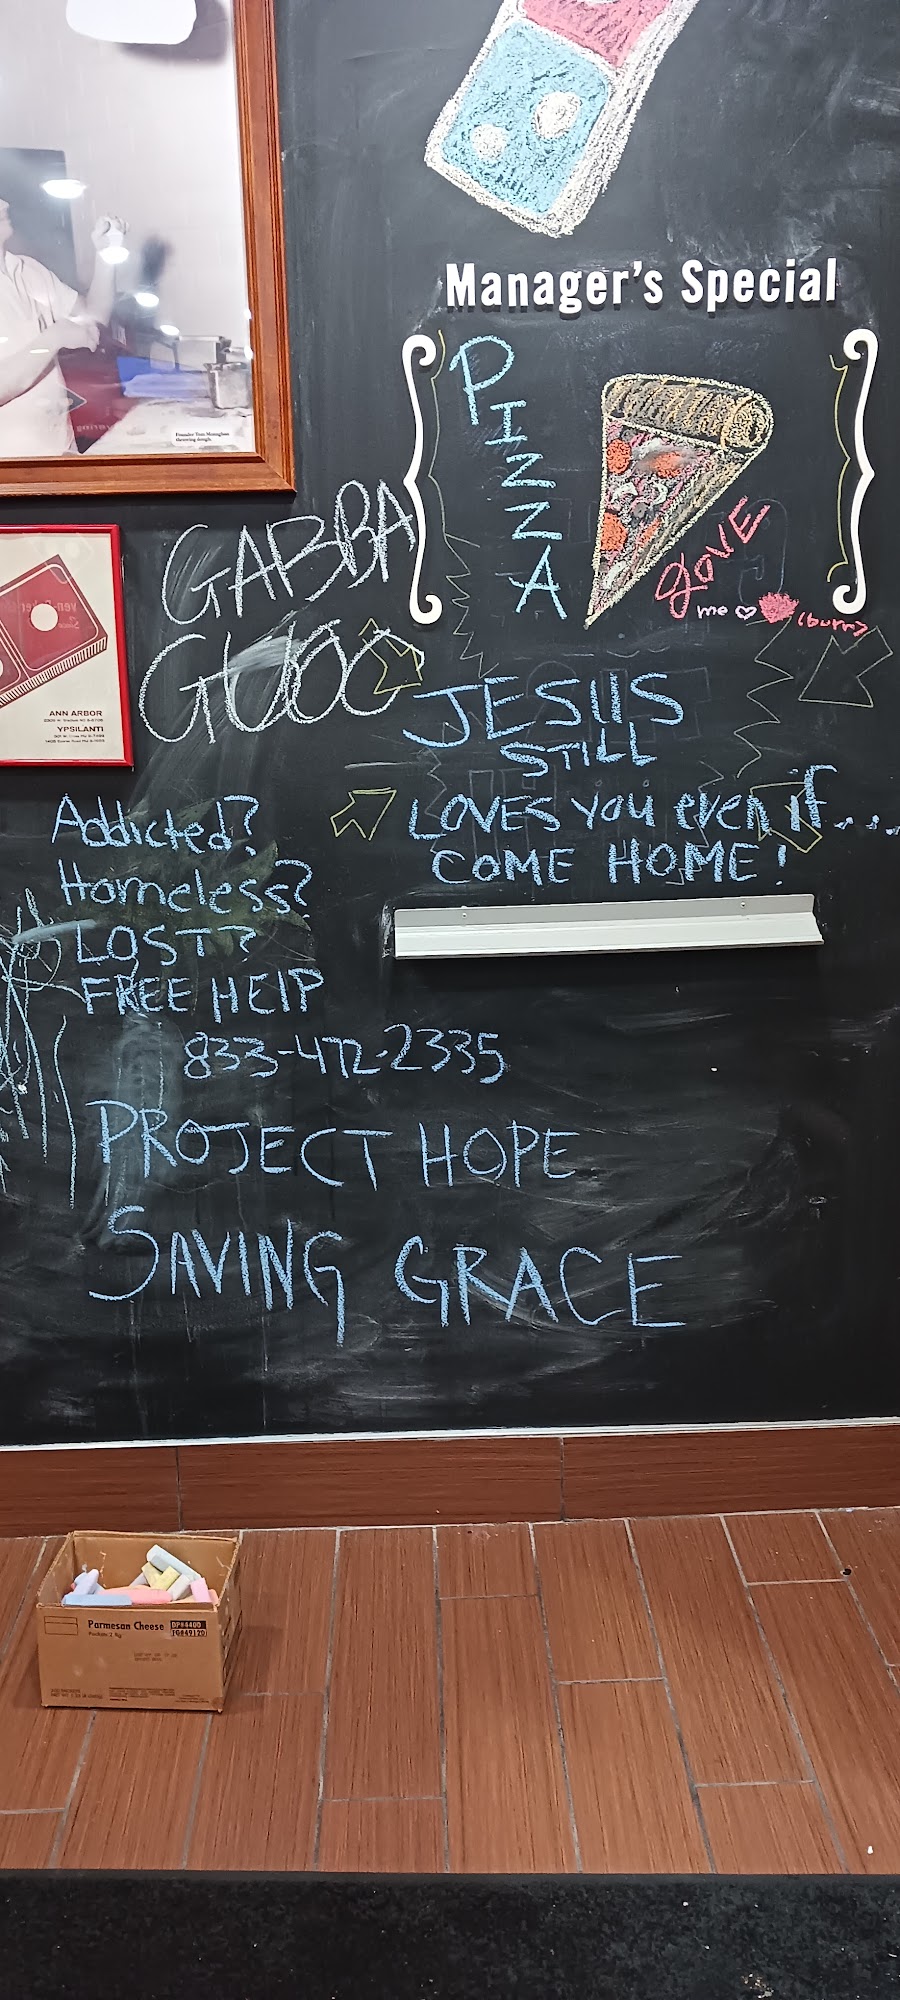 Manager's Special
PIZZA
LOVE
me
(burn)
Founder Tom Monaghan
throwing dough.
GABBA
GOOO
ANN ARBOR
YPSILANTI
JESUS
STILL
LOVES You even if.....
COME HOME!
Addicted?
Homeless?
LOST?
FREE HElP
833-472-2335
PROJECT HOPE
SAVING GRACE
Parmesan Cheese